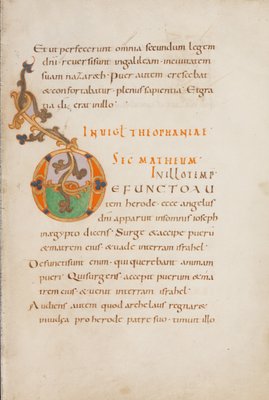 Et ut perfecerunt omnia secundum legem
dni. reversi sunt in galileam. in civitatem
suam nazareth. Puer autem crescebat
& confortabatur. plenus sapientia. Et gra
tia di. erat in illo.
IN VIGL THEOPHANIAE.
SEC MATHEUM.
IN ILLO TEMP
DEFUNCTO AU
tem herode. ecce angelus
dni apparuit in somnis ioseph
in ægypto dicens. Surge & accipe puerū
& matrem eius. & vade in terram israhel.
Defuncti sunt enim. qui querebant animam
pueri. Qui surgens accepit puerum & ma
trem eius. & venit in terram israhel.
Audiens autem quod archelaus regnar&
in iudæa pro herode patre suo. timuit illo